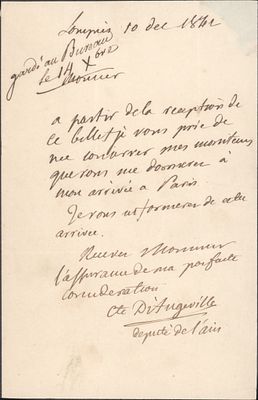 Lompnis 10 dec 1841
gardé au Bureau
le 14 Xbre
Monsieur
a partir de la reception de
ce billet je vous prie de
me conserver mes moniteurs
que vous me donnerez à
mon arrivée à Paris.
Je vous informerai de cette
arrivée.
Recevez Monsieur
l'assurance de ma parfaite
consideration
Cte D'Angeville
deputé de l'ain